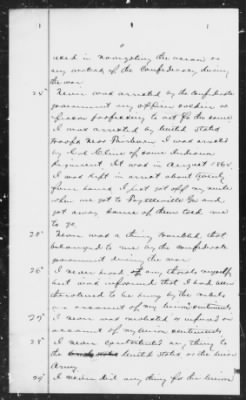 used in navigating the ocean or
any waters of the Confederacy during
the war
24" Never was arrested by the Confederate
government any officer soldier or
person professing to act for the same
I was arrested by United States
troops near I was arrested
by Col of some Indiana
Regiment It was in August 1864.
I was kept in arrest about twenty
four hours I just got off my mule
when we got to Fayetteville Ga and
got away Some of them told me
to go.
25" Never was a thing that
belonged to me by the Confederate
government during the war
26" I never heard any threats myself
but was informed that I had been
threatened to be hung by the rebels
on account of my union sentiments
27" I never was molested or injured on
account of my union sentiments
28" I never contributed any thing to
the United States or the union
Army
29" I never did any thing for the union